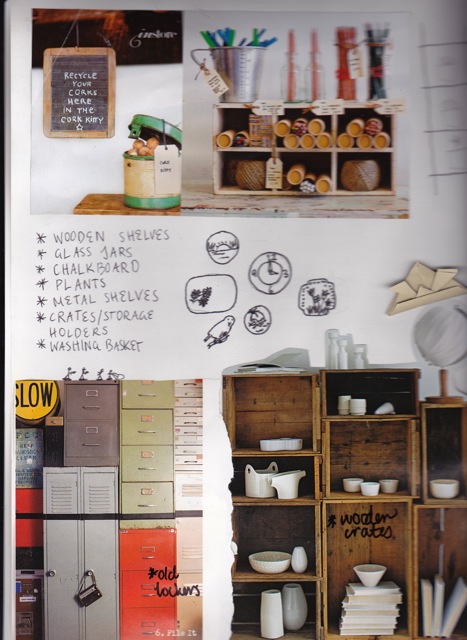 RECYCLE
YOUR
CORKS
HERE
IN THE
CORK KITTY
* WOODEN SHELVES
* GLASS JARS
* CHALKBOARD
* PLANTS
* METAL SHELVES
* CRATES/STORAGE
HOLDERS
* WASHING BASKET
SLOW
* old
lockers
6. File It
* wooden
crates